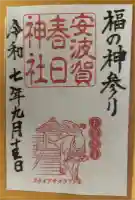 福の神参り
安波賀
春日
神社
令和七年九月十五日